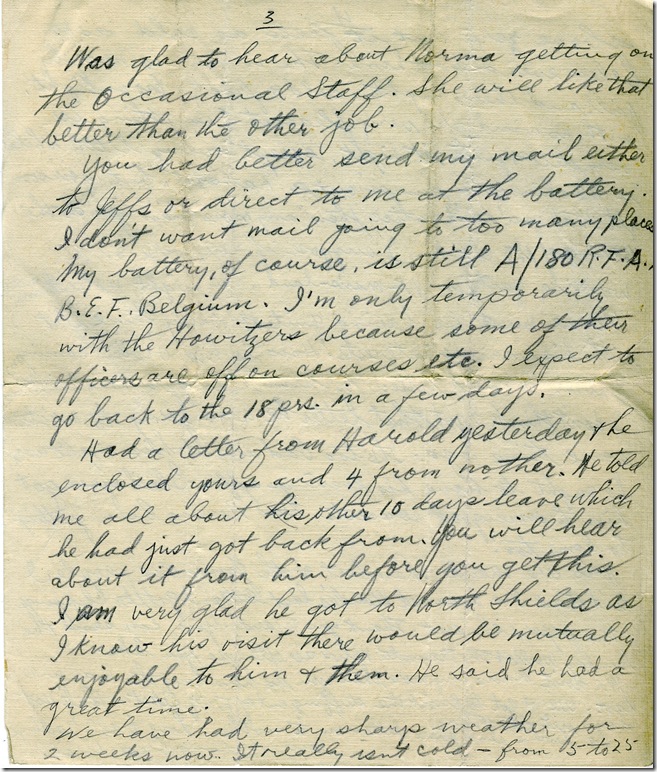 3
Was glad to hear about Norma getting on
the Occasional Staff. She will like that
better than the other job.
You had better send my mail either
to Jeffs or direct to me at the battery.
I don't want mail going to too many places
My battery, of course, is still A/180 R.F.A.,
B.E.F. Belgium. I'm only temporarily
with the Howitzers because some of their
officers are off on courses etc. I expect to
go back to the 18 prs. in a few days.
Had a letter from Harold yesterday & he
enclosed yours and 4 from mother. He told
me all about his other 10 days leave which
he had just got back from. You will hear
about it from him before you get this.
I am very glad he got to North Shields as
I know his visit there would be mutually
enjoyable to him & them. He said he had a
great time.
We have had very sharp weather for
2 weeks now. It really isn't cold – from 15 to 25